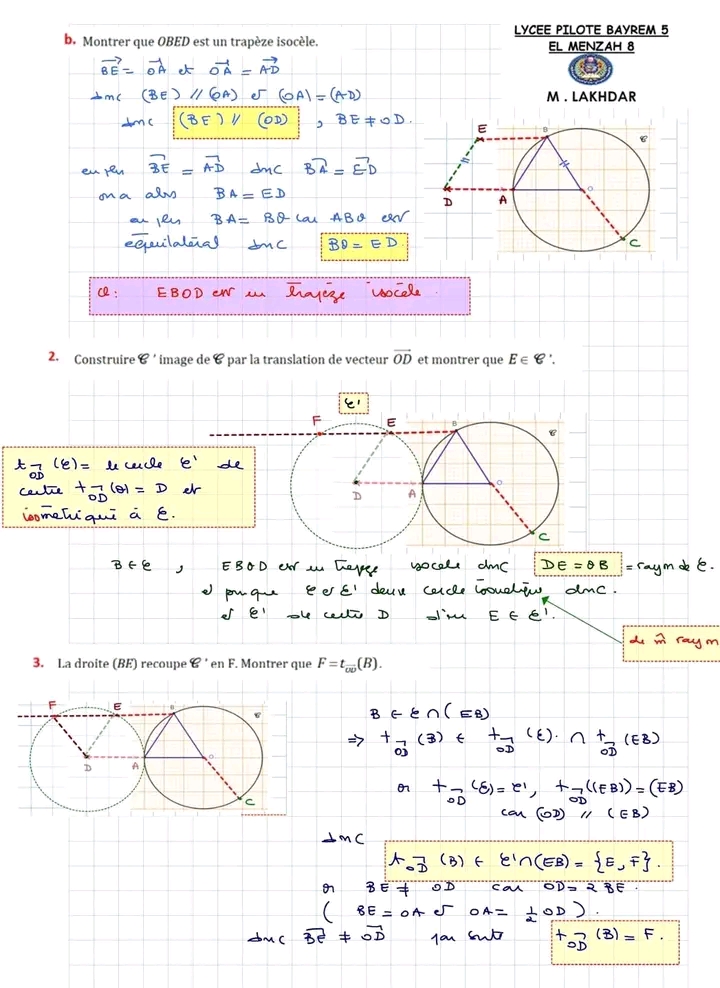 LYCEE PILOTE BAYREM 5
EL MENZAH 8
M . LAKHDAR
b. Montrer que OBED est un trapèze isocèle.
BE⃗ = OA⃗ et OA⃗ = AD⃗
dmc (BE) // (OA) et (OA) = (AD)
dmc (BE) // (OD) , BE ≠ OD.
en plus BE⃗ = AD⃗ dmc BA⃗ = ED⃗
on a alors BA = ED
en plus BA = BO car ABO est
équilatéral dmc BO = ED.
cl: EBOD est un trapèze isocèle.
E B C
D A O
C
2. Construire C ' image de C par la translation de vecteur OD⃗ et montrer que E ∈ C '.
C'
F E B C
D A O
C
t OD⃗ (C) = le cercle C' de
centre t OD⃗ (O) = D et
isométrique à C.
B ∈ C , EBOD est un trapèze isocele dmc DE = OB = raym de C.
et puisque C et C' deux cercle isométrique dmc.
et C' de centre D d'où E ∈ C'.
de m̂ raym
3. La droite (BE) recoupe C ' en F. Montrer que F = t OD⃗ (B).
F E B C
D A O
C
B ∈ C ∩ (EB)
⇒ t OD⃗ (B) ∈ t OD⃗ (C) ∩ t OD⃗ (EB)
or t OD⃗ (C) = C', t OD⃗ ((EB)) = (EB)
car (OD) // (EB)
dmc
t OD⃗ (B) ∈ C' ∩ (EB) = {E, F}.
or BE ≠ OD car OD = 2 BE.
( BE = OA et OA = 1/2 OD ).
dmc BE⃗ ≠ OD⃗ par suite t OD⃗ (B) = F.